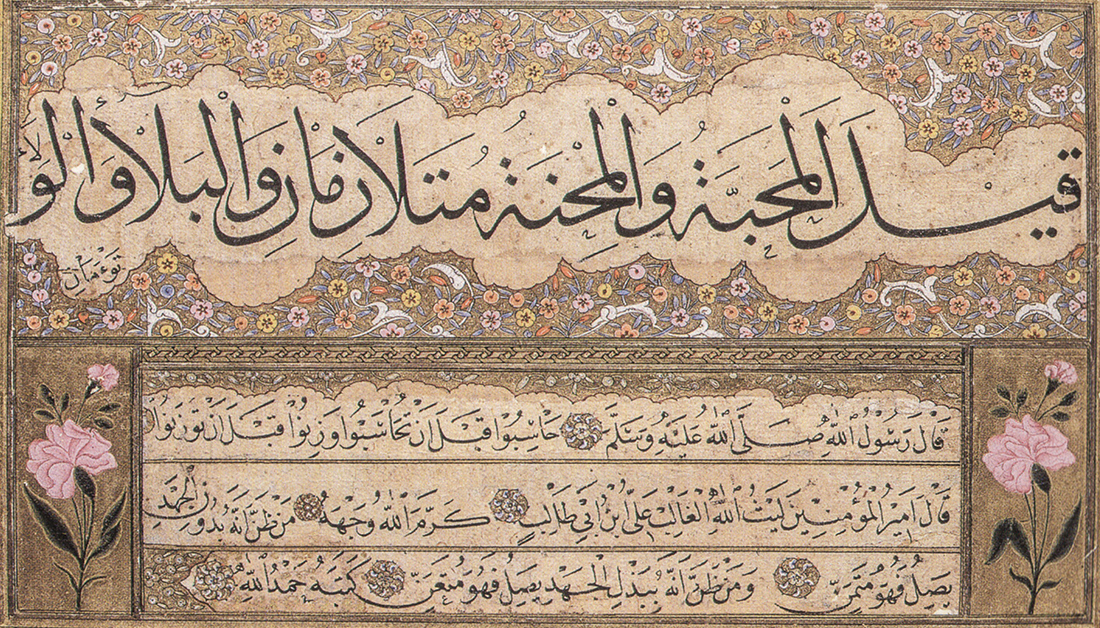 قيل المحبّة والمحنة متلازمان والبلاء والولاء
توءمان
قال رسول الله صلى الله عليه وسلم حاسبوا قبل ان تحاسبوا وزنوا قبل ان توزنوا
قال امير المؤمنين ليث الله الغالب على ابن ابي طالب كرم الله وجهه من ظن انه بدون الجهد
يصل فهو متمن ومن ظن انه ببذل الجهد يصل فهو متعن كتبه حمد الله